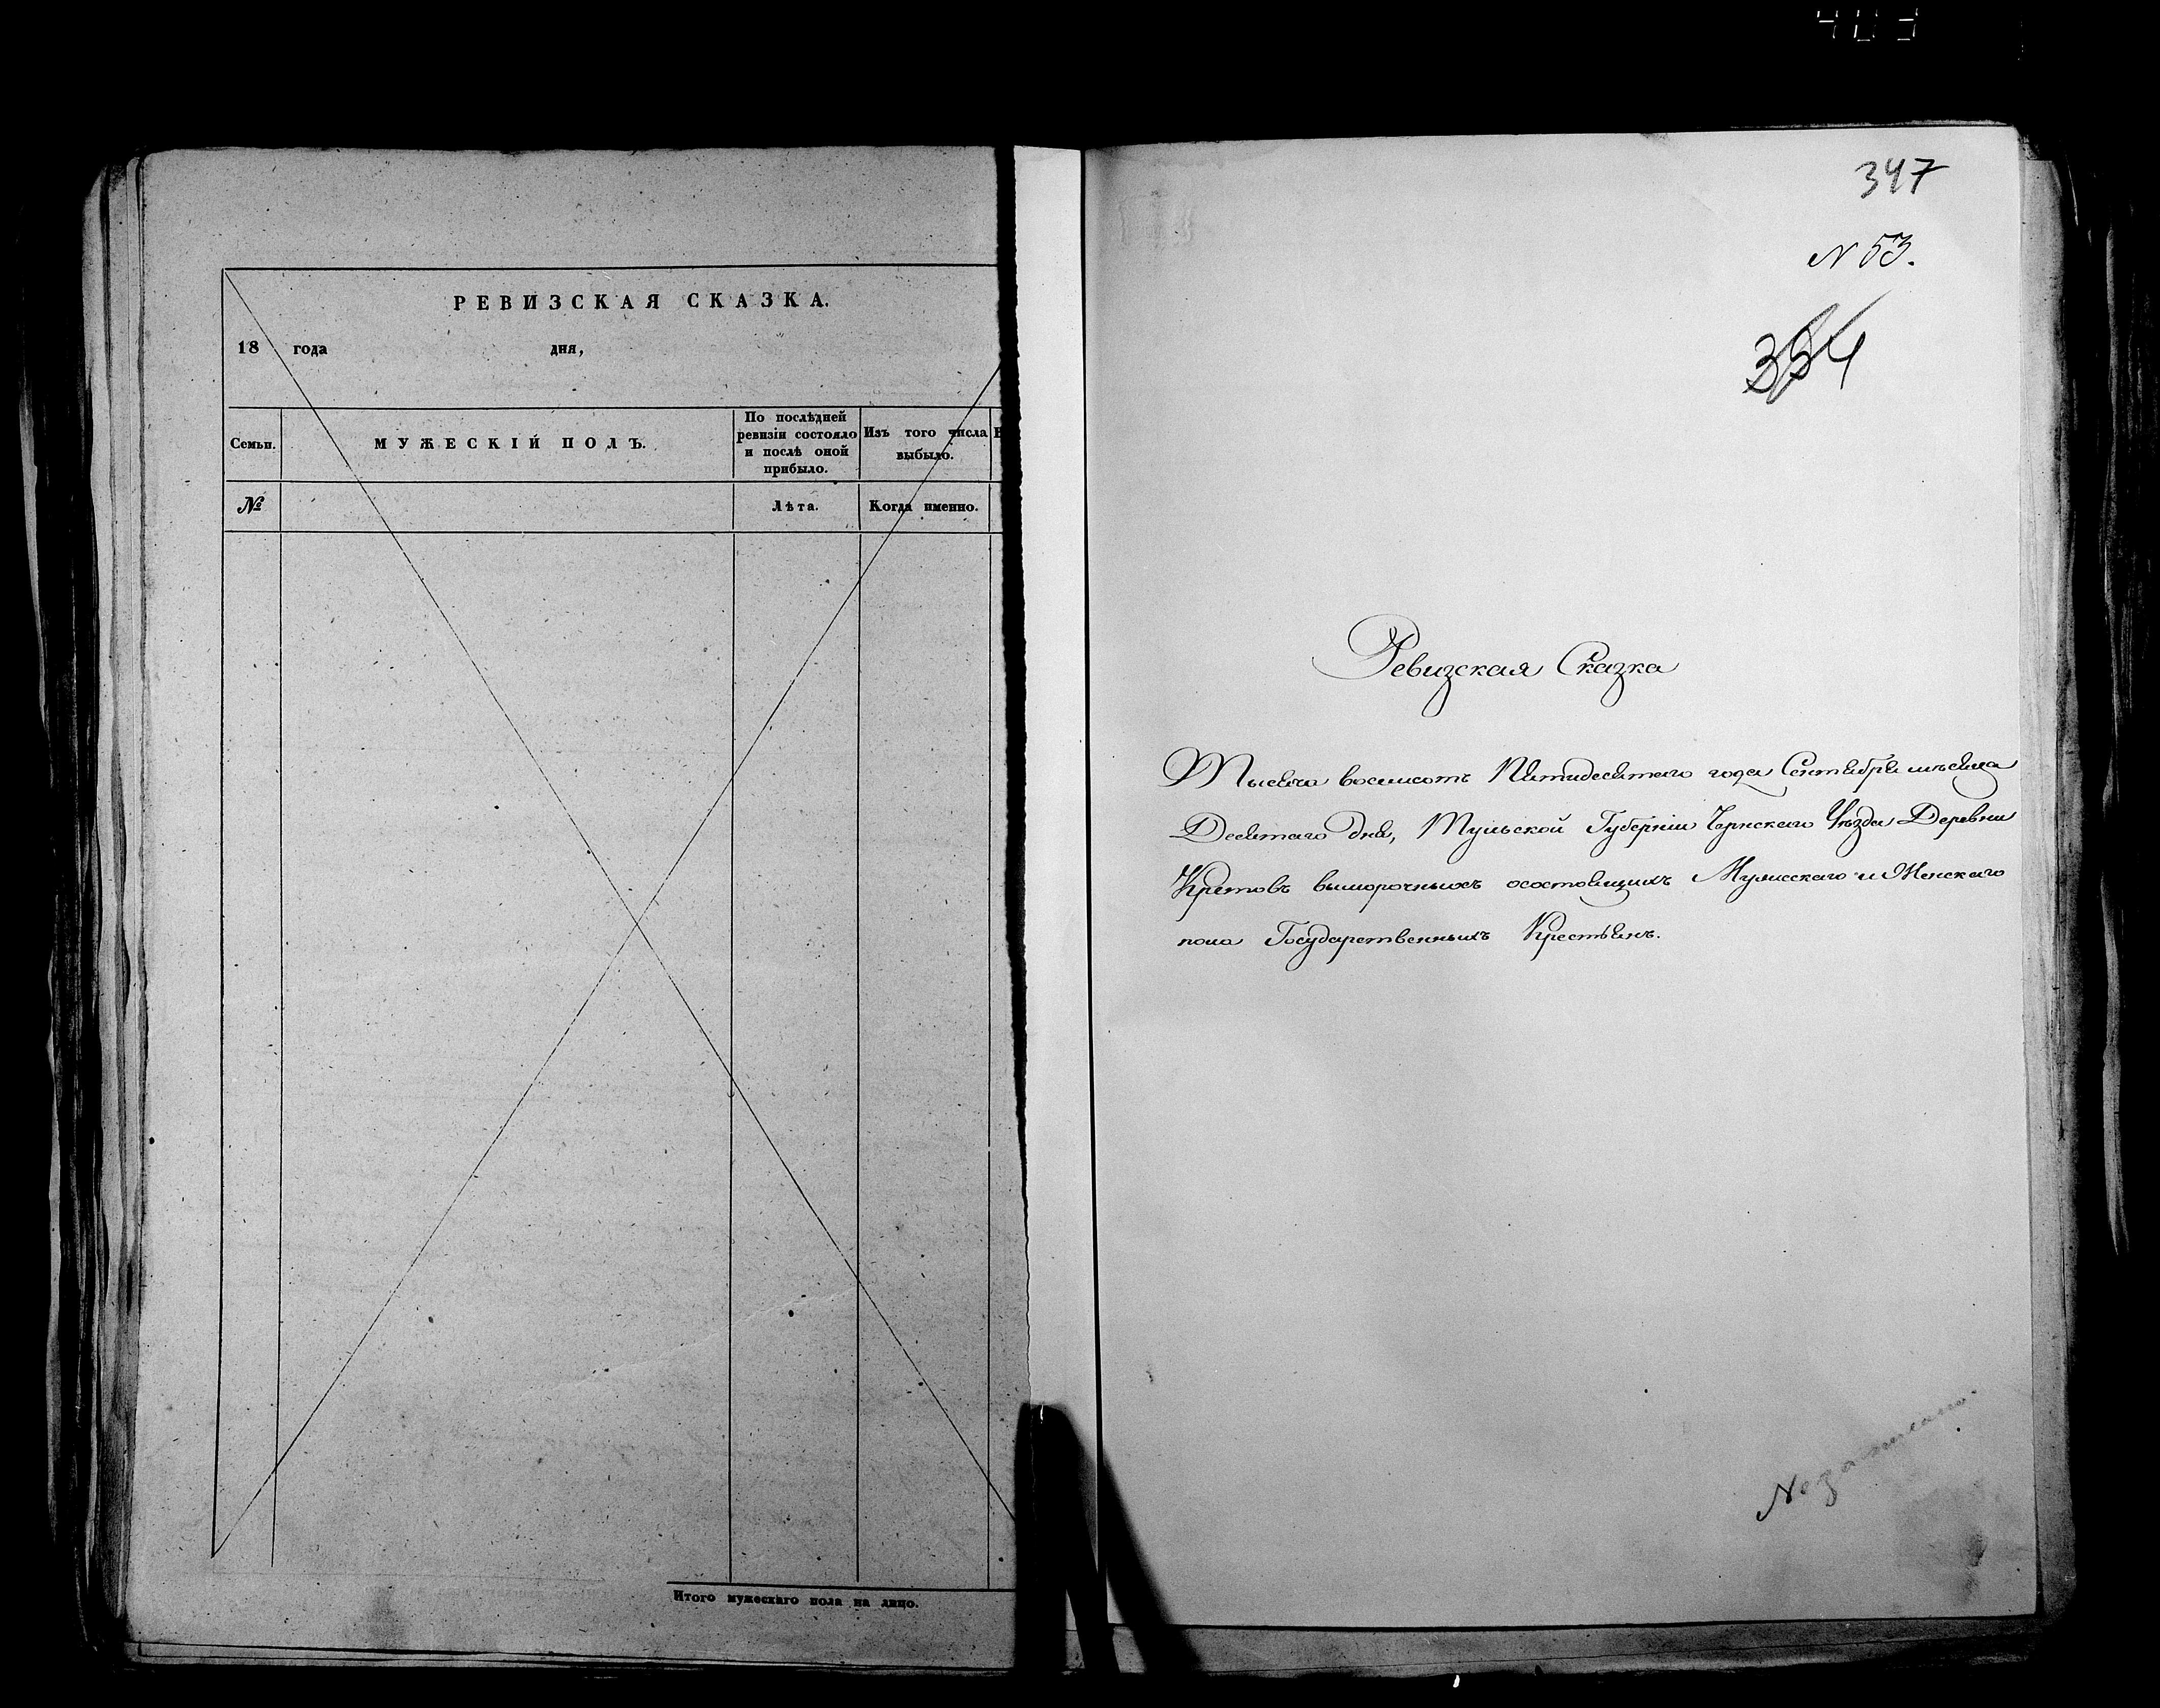 403
РЕВИЗСКАЯ СКАЗКА.
18 года дня,
Семьи.
МУЖЕСКІЙ ПОЛЪ.
По послѣдней
ревизіи состояло
и послѣ оной
прибыло.
Изъ того числа
выбыло.
№
Лѣта.
Когда именно.
Итого мужескаго пола на лицо.
347
N 53.
354
Ревизская Сказка
Тысяча восемьсотъ Пятидесятаго года Сентября мѣсяца
Десятаго дня, Тульской Губерніи Чернскаго Уѣзда Деревни
Кретовъ выморочныхъ осостоящихъ Мужескаго и Женскаго
пола Государственныхъ Крестьянъ.